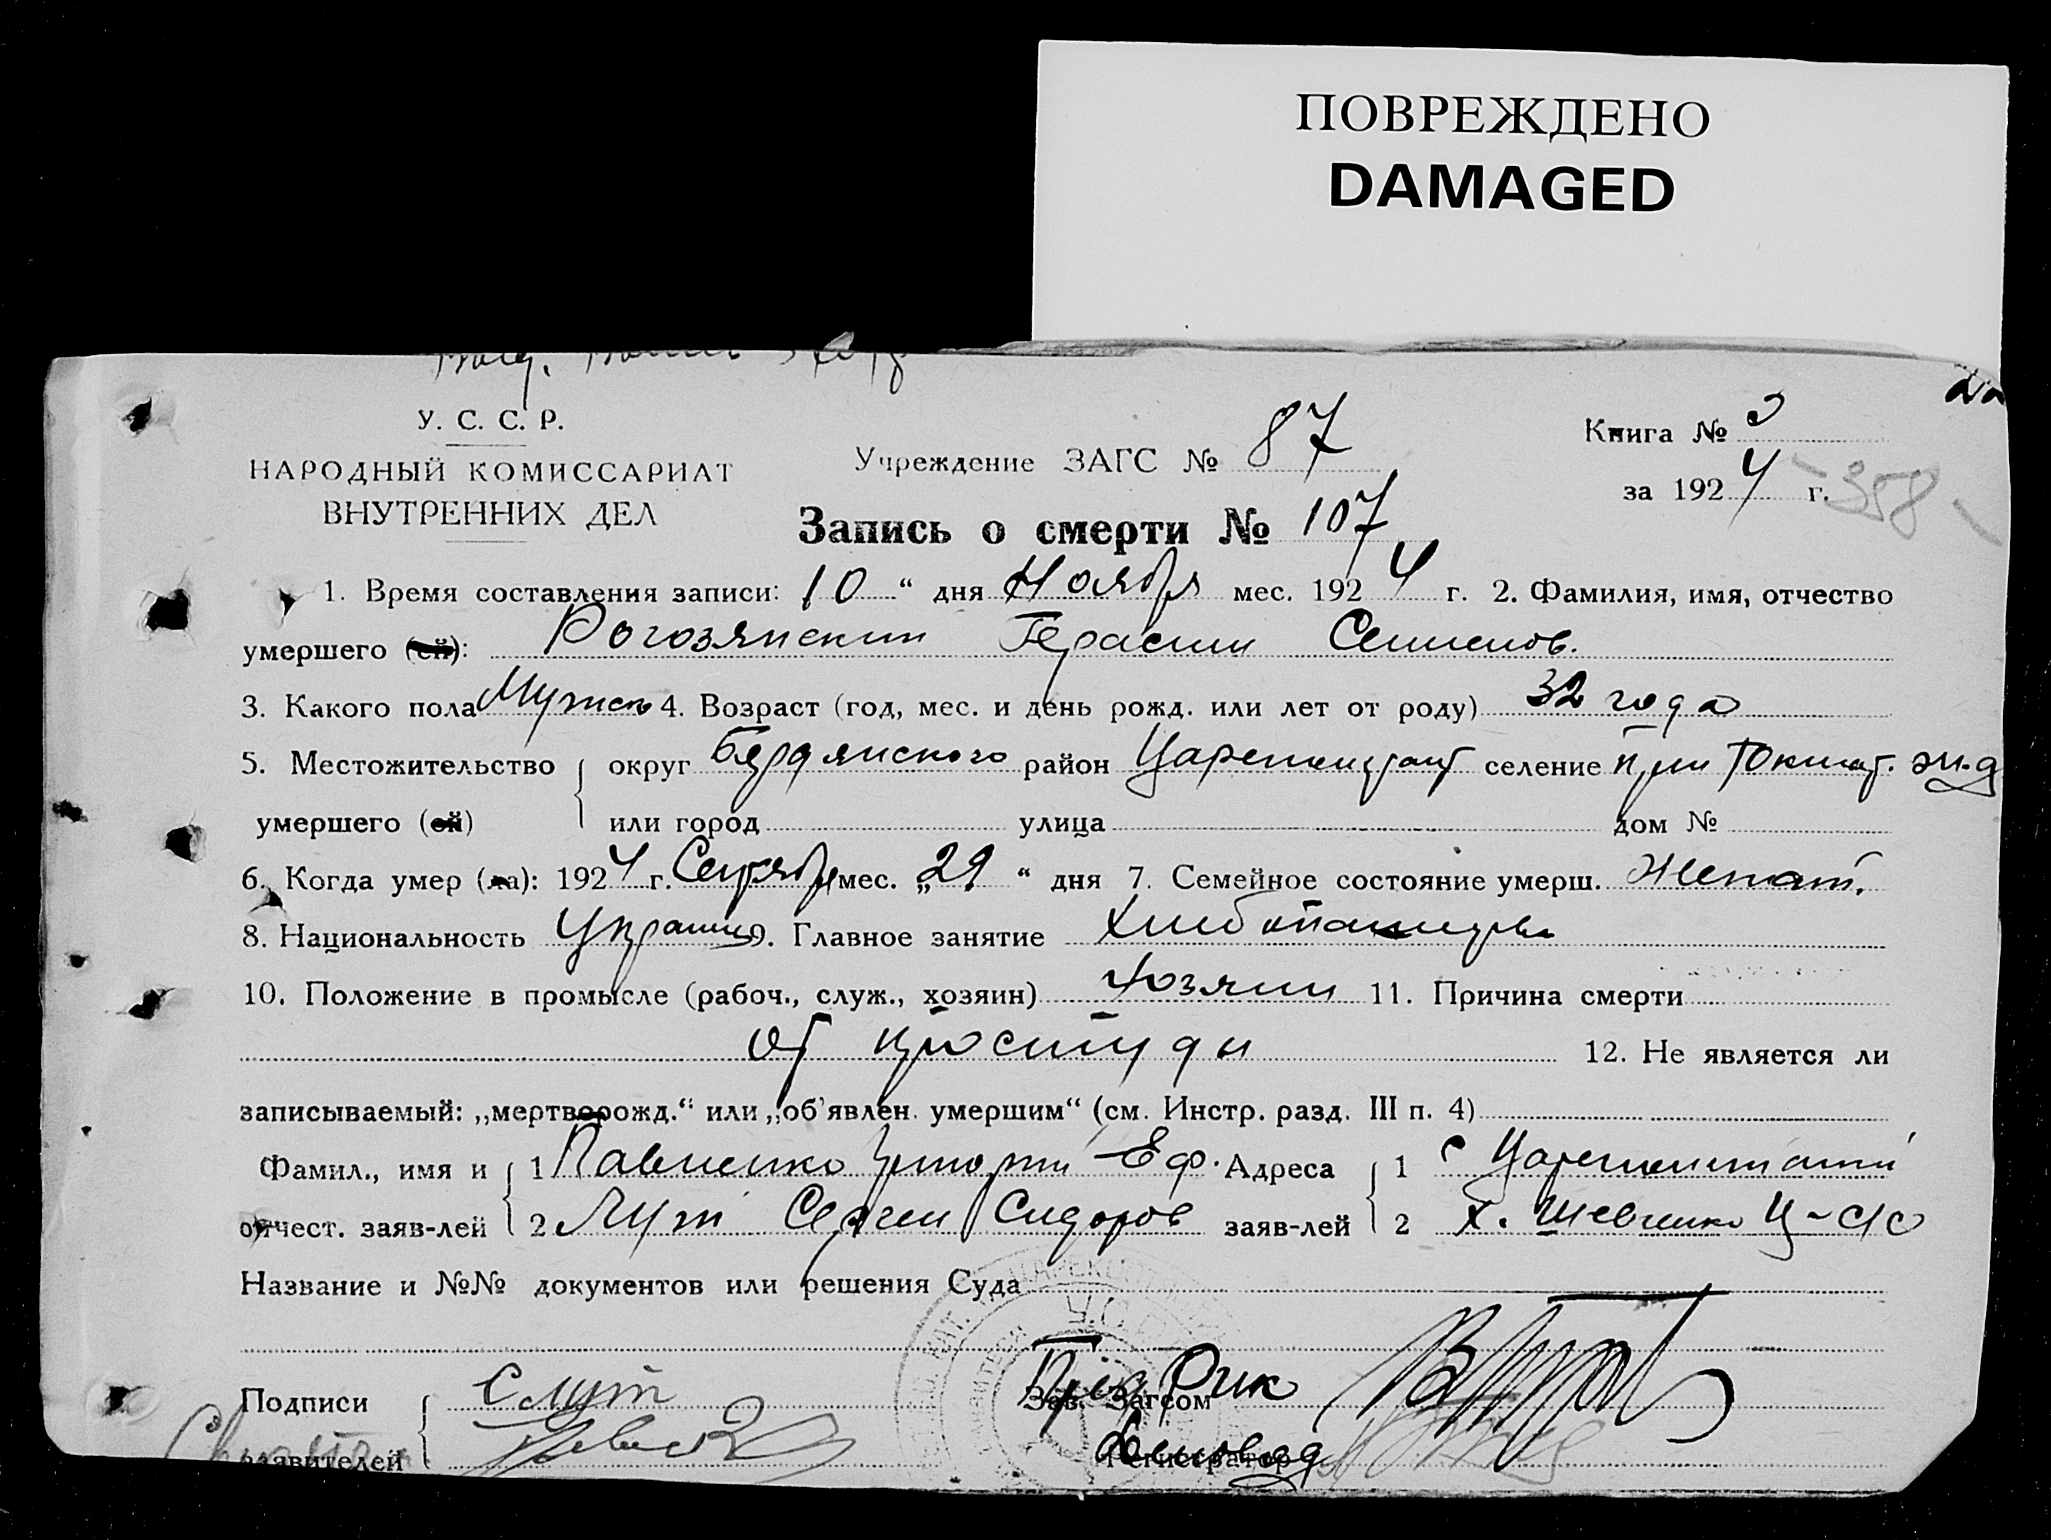 ПОВРЕЖДЕНО
DAMAGED
У. С. С. Р.
НАРОДНЫЙ КОМИССАРИАТ
ВНУТРЕННИХ ДЕЛ
Учреждение ЗАГС № 87
Книга № 2
за 1924 г.
- 358 -
Запись о смерти № 107
1. Время составления записи: 10 “ дня Ноября мес. 1924 г. 2. Фамилия, имя, отчество
умершего (ей): Рогозянский Герасим Семенов.
3. Какого пола Мужск 4. Возраст (год, мес. и день рожд. или лет от роду) 32 года
5. Местожительство округ Бердянского район Цареконстант селение при Токмат.
умершего (ой) или город улица дом №
6. Когда умер (ла): 1924 г. Сентября мес. „29 “ дня 7. Семейное состояние умерш. Женат.
8. Национальность Украинец 9. Главное занятие Хлебопашество
10. Положение в промысле (рабоч., служ., хозяин) Хозяин 11. Причина смерти
от простуды 12. Не является ли
записываемый: „мертворожд.“ или „об'явлен. умершим“ (см. Инстр. разд. III п. 4)
Фамил., имя и 1 Павленко Григорий Еф. Адреса 1 с Цареконстант
отчест. заяв-лей 2 Лут Сергей Сидоров заяв-лей 2 х. Шевченко Ц-с/с
Название и №№ документов или решения Суда
У.С.С.Р.
Подписи С Лут Зав. Загсом Пред Рик
заявителей Регистратор